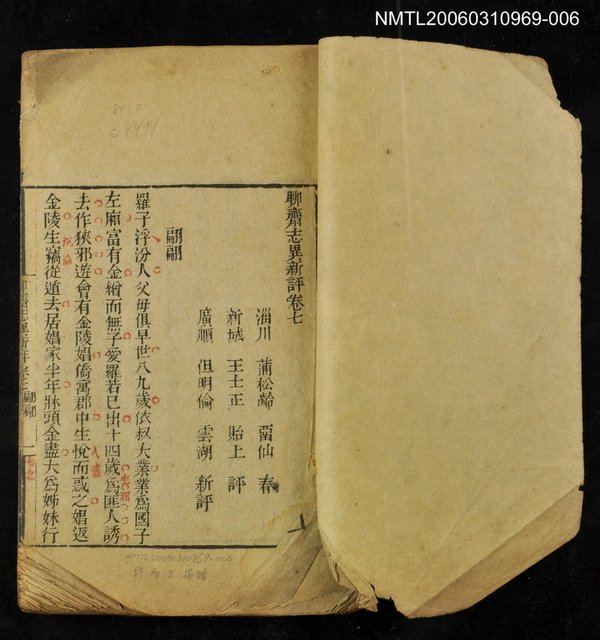 NMTL20060310969-006
聊齋志異新評卷七
淄川 蒲松齡 畱仙 著
新城 王士正 貽上 評
廣順 但明倫 雲湖 新評
翩翩
羅子浮汾人父母俱早世八九歲依叔大業業為國子
左廂富有金繒而無子愛羅若己出十四歲為匪人誘
去作狹邪遊會有金陵娼僑寓郡中生悅而惑之娼返
金陵生竊從遁去居娼家半年牀頭金盡大為姊妹行
NMTL20060310969-006